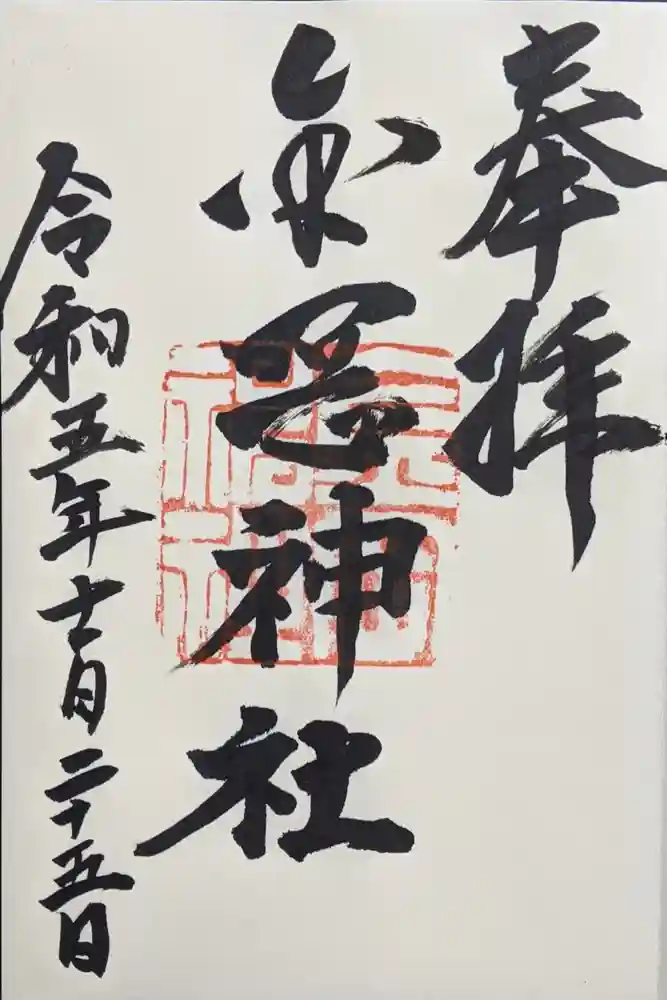 奉拝
神社
令和五年十一月二十五日